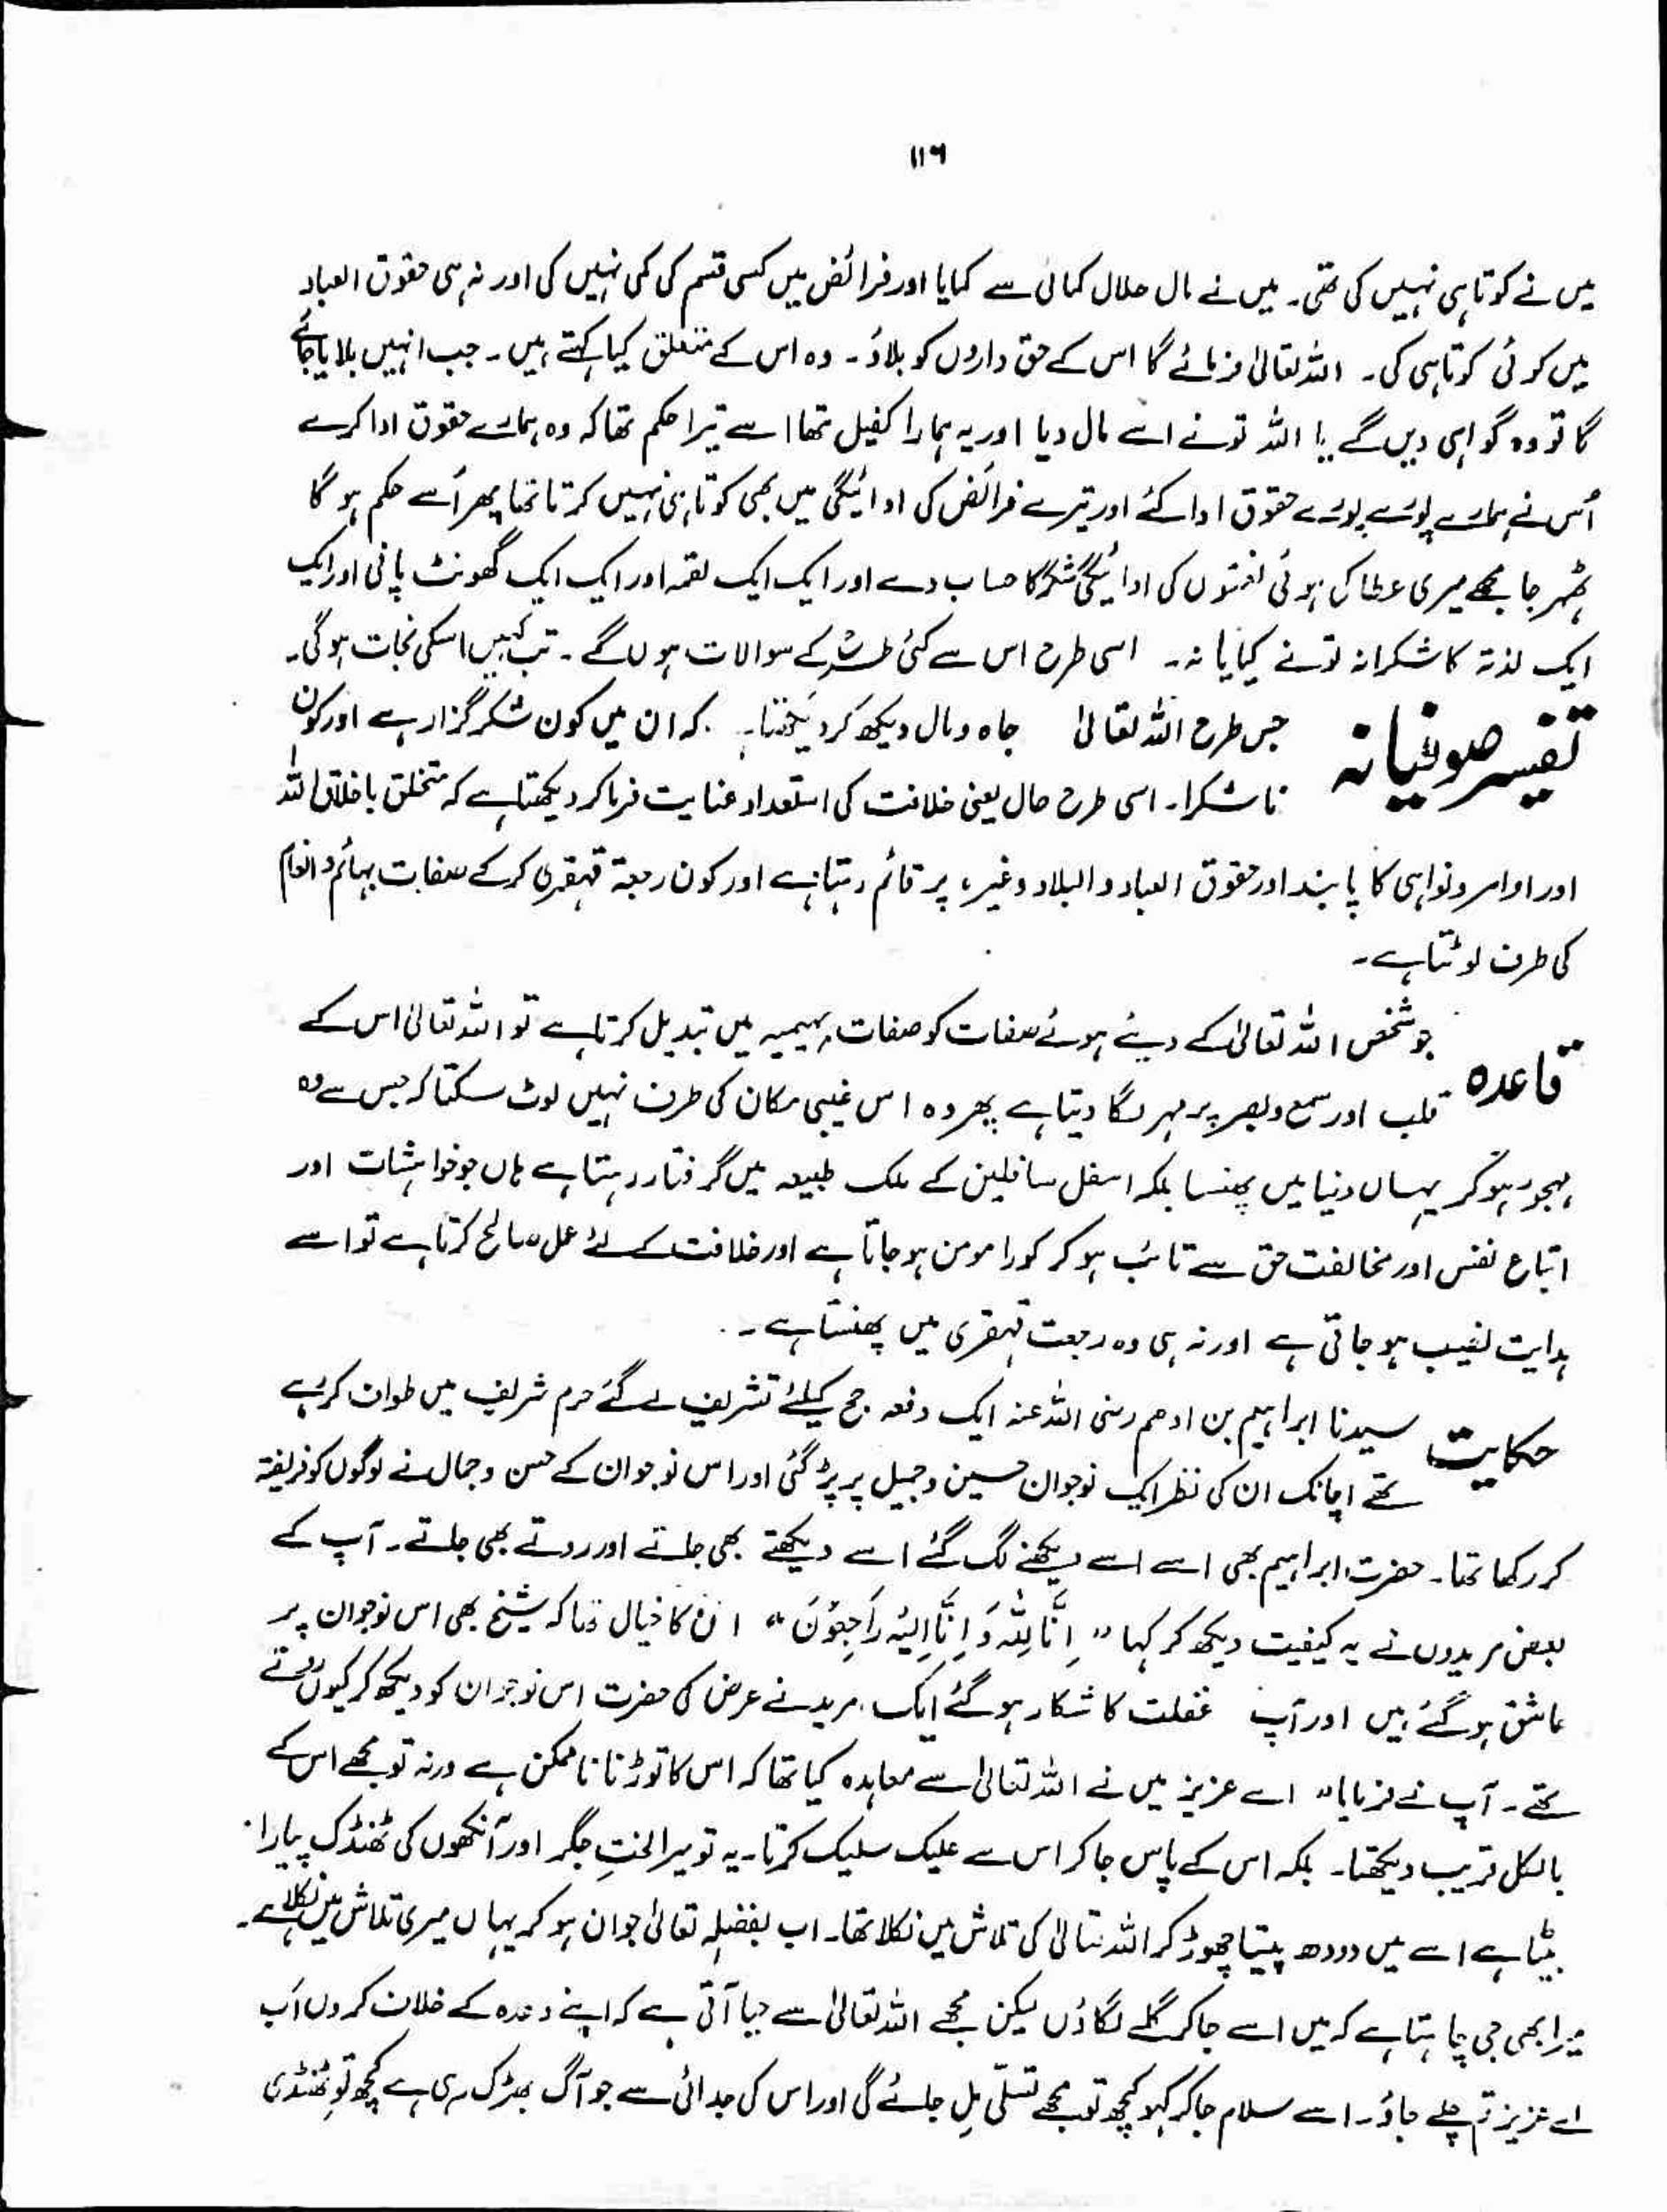 ۱۱۶
میں نے کوتاہی نہیں کی تھی۔ میں نے مال حلال کمائی سے کمایا اور فرائض میں کسی قسم کی کمی نہیں کی اور نہ ہی حقوق العباد
میں کوئی کوتاہی کی۔ اللہ تعالیٰ فرمائے گا اس کے حق داروں کو بلاؤ۔ وہ اس کے متعلق کیا کہتے ہیں۔ جب انہیں بلایا جائے
گا تو وہ گواہی دیں گے یا اللہ تو نے اسے مال دیا اور یہ ہمارا کفیل تھا اسے تیرا حکم تھا کہ وہ ہمارے حقوق ادا کرے
اُس نے ہمارے پورے پورے حقوق ادا کئے اور تیرے فرائض کی ادائیگی میں بھی کوتاہی نہیں کرتا تھا پھر اُسے حکم ہو گا
ٹھہر جا مجھے میری عطا کی ہوئی نعمتوں کی ادائیگی شکر کا حساب دے اور ایک ایک لقمہ اور ایک ایک گھونٹ پانی اور ایک
ایک لذت کا شکرانہ تو نے کیا یا نہ۔ اسی طرح اس سے کئی طرح کے سوالات ہوں گے۔ تب کہیں اسکی نجات ہوگی۔
تفسیر صوفیانہ جس طرح اللہ تعالیٰ جاہ و مال دیکھ کر دیکھتا ہے کہ ان میں کون شکر گزار ہے اور کون
ناشکرا۔ اسی طرح حال یعنی خلافت کی استعداد عنایت فرما کر دیکھتا ہے کہ متخلق باخلاق اللہ
اور اوامر و نواہی کا پابند اور حقوق العباد و البلاد وغیرہ پر قائم رہتا ہے اور کون رجعۃ قہقری کر کے صفات بہائم و انعام
کی طرف لوٹتا ہے۔
قاعدہ جو شخص اللہ تعالیٰ کے دیئے ہوئے صفات کو صفات بہیمیہ میں تبدیل کرتا ہے تو اللہ تعالیٰ اس کے
قلب اور سمع و بصر پر مہر لگا دیتا ہے پھر وہ اس غیبی مکان کی طرف نہیں لوٹ سکتا کہ جس سے وہ
مہجور ہو کر یہاں دنیا میں پھنسا بلکہ اسفل سافلین کے ملک طبیعہ میں گرفتار رہتا ہے ہاں جو خواہشات اور
اتباع نفس اور مخالفت حق سے تائب ہو کر کورا مومن ہو جاتا ہے اور خلافت کے لئے عمل صالح کرتا ہے تو اسے
ہدایت نصیب ہو جاتی ہے اور نہ ہی وہ رجعت قہقری میں پھنستا ہے۔
حکایت سیدنا ابراہیم بن ادھم رضی اللہ عنہ ایک دفعہ حج کیلئے تشریف لے گئے حرم شریف میں طواف کر رہے
تھے اچانک ان کی نظر ایک نوجوان حسین و جمیل پر پڑ گئی اور اس نوجوان کے حسن و جمال نے لوگوں کو فریفتہ
کر رکھا تھا۔ حضرت ابراہیم بھی اسے اسے دیکھنے لگ گئے اسے دیکھتے بھی جاتے اور روتے بھی جاتے۔ آپ کے
بعض مریدوں نے یہ کیفیت دیکھ کر کہا " اِنَّا لِلّٰہِ وَ اِنَّا اِلَیْہِ رَاجِعُوْنَ " ان کا خیال تھا کہ شیخ بھی اس نوجوان پر
عاشق ہو گئے ہیں اور آپ غفلت کا شکار ہو گئے ایک مرید نے عرض کی حضرت اس نوجوان کو دیکھ کر کیوں روتے
تھے۔ آپ نے فرمایا " اے عزیز میں نے اللہ تعالیٰ سے معاہدہ کیا تھا کہ اس کا توڑنا ناممکن ہے ورنہ تو مجھے اس کے
بالکل قریب دیکھتا۔ بلکہ اس کے پاس جا کر اس سے علیک سلیک کرتا۔ یہ تو میرا لختِ جگر اور آنکھوں کی ٹھنڈک پیارا
بیٹا ہے اسے میں دودھ پیتا چھوڑ کر اللہ تعالیٰ کی تلاش میں نکلا تھا۔ اب بفضلہ تعالیٰ جوان ہو کر یہاں میری تلاش میں نکلا ہے۔
میرا بھی جی چاہتا ہے کہ میں اسے جا کر گلے لگاؤں لیکن مجھے اللہ تعالیٰ سے حیا آتی ہے کہ اپنے وعدہ کے خلاف کروں اَب
اے عزیز تم چلے جاؤ۔ اسے سلام جا کر کہو کچھ تو مجھے تسلّی مِل جائے گی اور اس کی جدائی سے جو آگ بھڑک رہی ہے کچھ تو ٹھنڈی